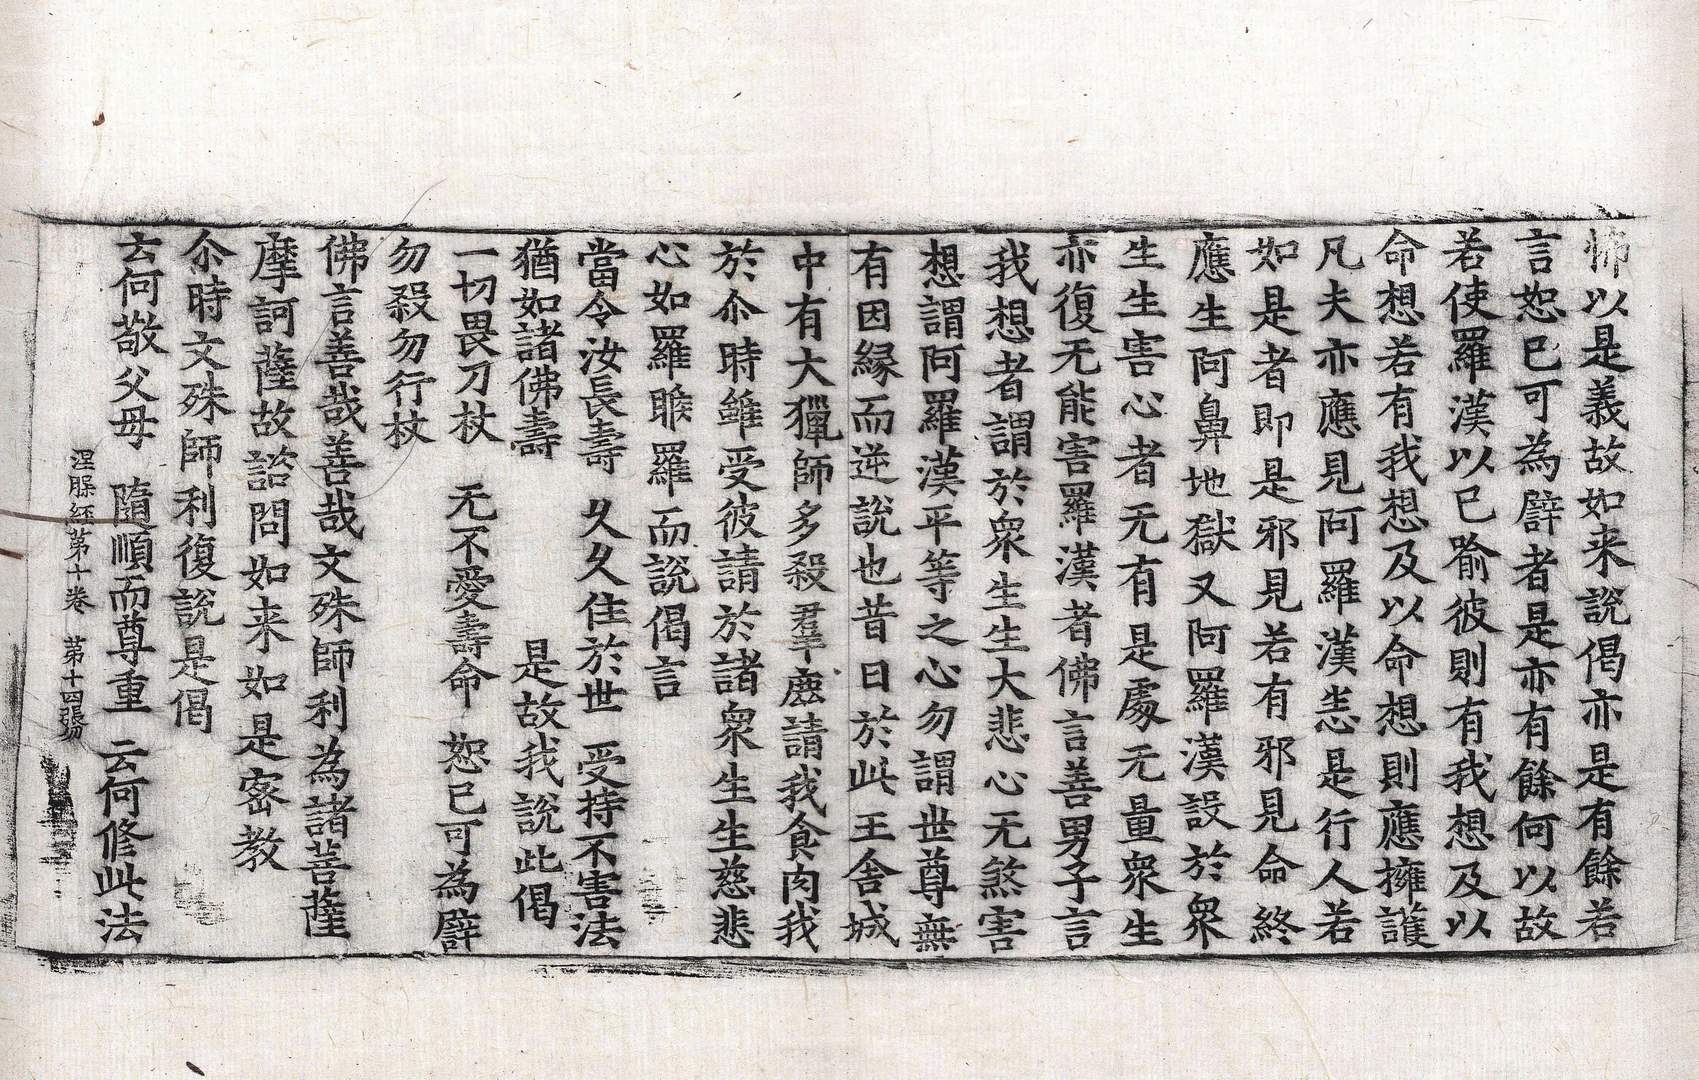 怖以是義故如来說偈亦是有餘若
言恕巳可為譬者是亦有餘何以故
若使羅漢以巳喻彼則有我想及以
命想若有我想及以命想則應擁護
凡夫亦應見阿羅漢悉是行人若
如是者即是邪見若有邪見命終
應生阿鼻地獄又阿羅漢設於衆
生生害心者无有是處无量衆生
亦復无能害羅漢者佛言善男子言
我想者謂於衆生生大悲心无煞害
想謂阿羅漢平等之心勿謂世尊無
有因縁而逆說也昔日於此王舎城
中有大獵師多殺羣鹿請我食肉我
於尒時雖受彼請於諸衆生生慈悲
心如羅睺羅而說偈言
當令汝長壽　久久住於世　受持不害法
猶如諸佛壽　是故我說此偈
一切畏刀杖　无不愛壽命　恕己可為譬
勿殺勿行杖
佛言善哉善哉文殊師利為諸菩薩
摩訶薩故諮問如来如是密教
尒時文殊師利復說是偈
云何敬父母　隨順而尊重　云何修此法
涅槃経第十卷　第十四張